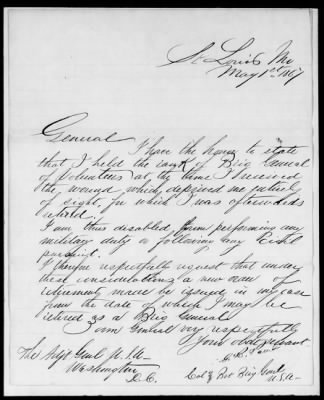 St Louis Mo
May 1st 1867
General
I have the honor to state
that I held the rank of Brig General
of Volunteers at, the time I received
the, wound, which, deprived me entirely
of sight, for which I was afterwards
retired.
I am thus disabled, from performing any
military duty or following any Civil
pursuit.
I therefore respectfully request that under
these considerations a new order of
retirement made be issued in my case
from the date of which I may be
retired as a Brig General
I am General very respectfully
Your obdt servant
Col & Bvt Brig Genl
U.S.A-
The Adjt Genl U.S.A-
Washington
D.C.